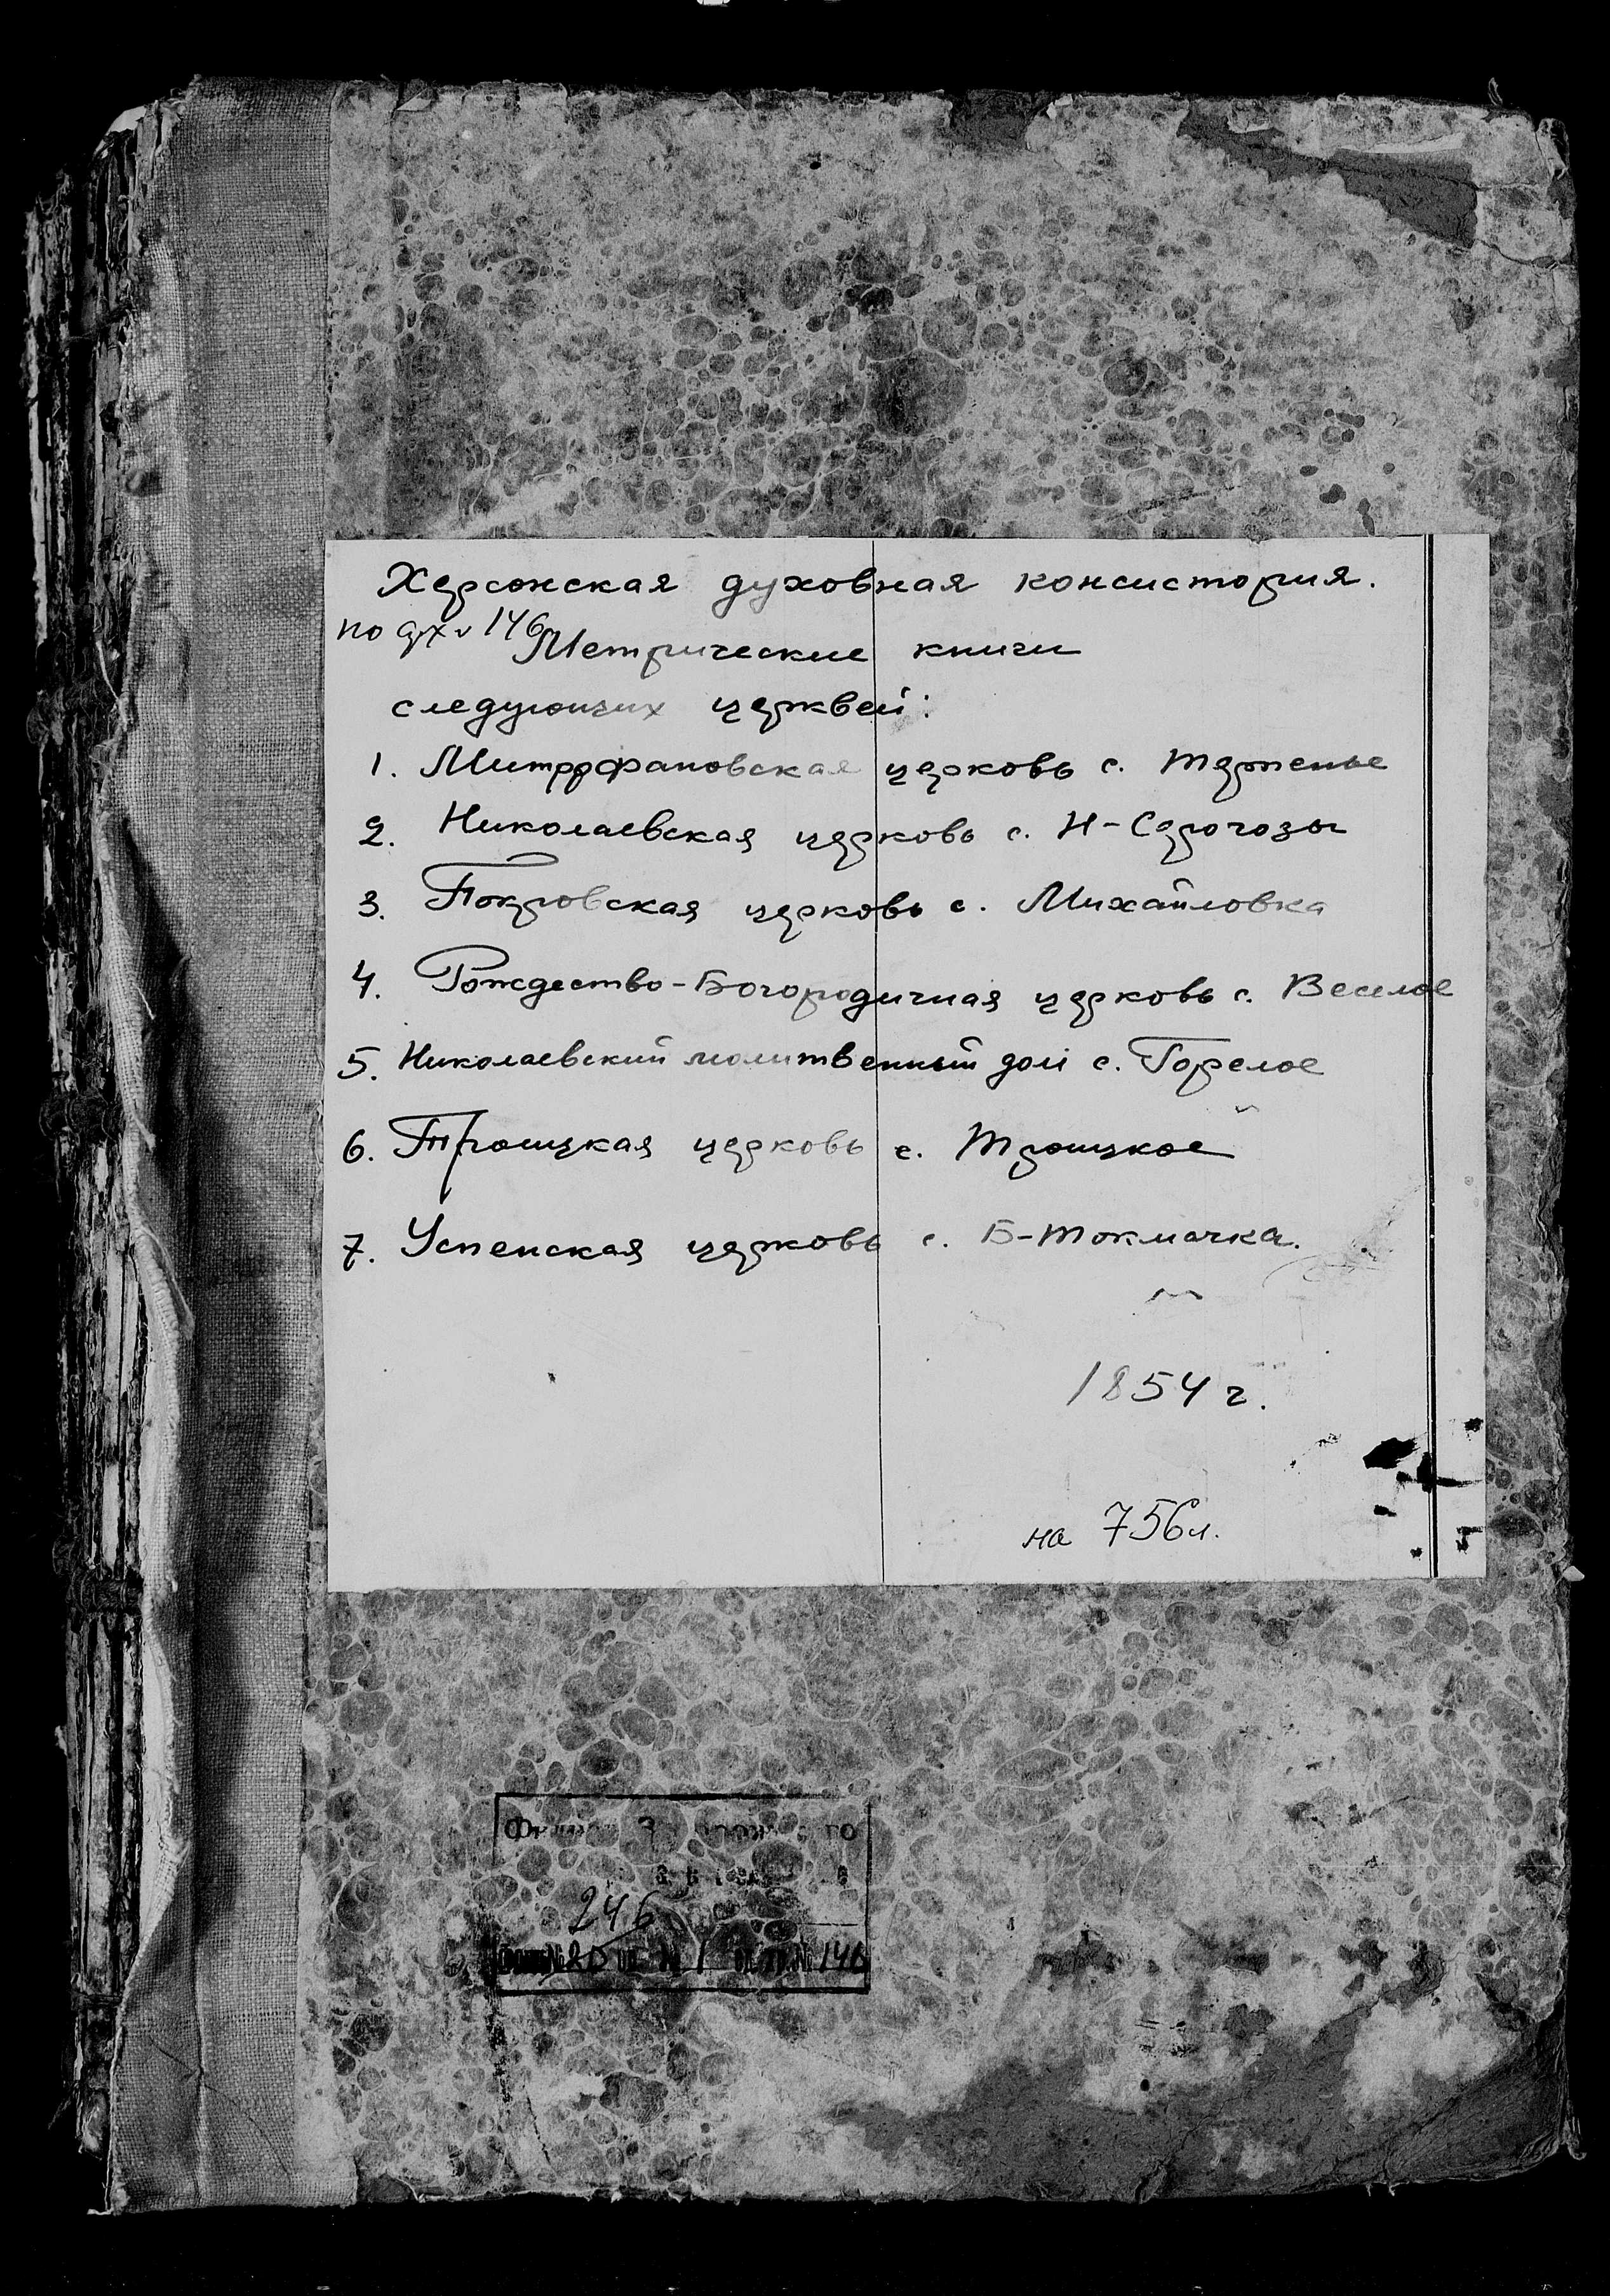 Херсонская духовная консистория.
по 146
Метрические книги
следующих церквей:
1. Митрофановская церковь с. Терпенье
2. Николаевская церковь с. Н-Серогозы
3. Покровская церковь с. Михайловка
4. Рождество-Богородичная церковь с. Веселое
5. Николаевский молитвенный дом с. Горелое
6. Троицкая церковь с. Троицкое
7. Успенская церковь с. Б-Токмачка.
1854 г.
на 756л.
246
1 146